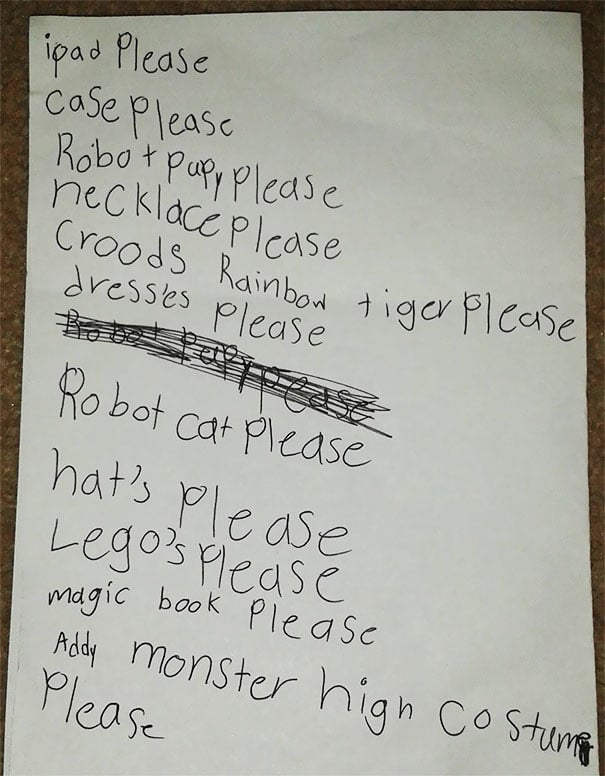 ipad Please
case please
Robot pupy please
necklace please
Croods Rainbow tiger please
dresses please
Robot pupy please
Robot cat please
hat's please
Lego's please
magic book Please
Addy monster high costume
Please